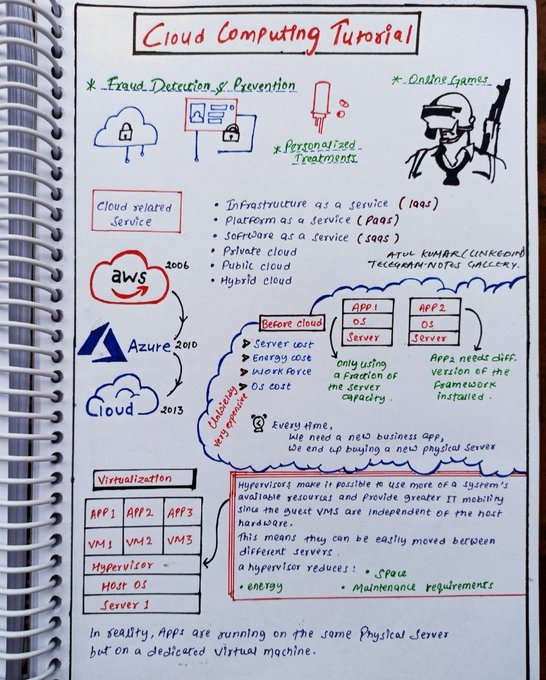 Cloud Computing Turorial
* Fraud Detection & Prevention
* Online Games
* Personalized
Treatments
Cloud related
Service
• Infrastructure as a service (Iaas)
• Platform as a service (Paas)
• Software as a service (saas)
• Private cloud
• Public cloud
• Hybrid cloud
ATUL KUMAR (LINKEDIN)
TELEGRAM-NOTES GALLERY.
aws
2006
Azure
2010
Cloud
2013
Before cloud
Server cost
Energy cost
Workforce
Os cost
Unwieldy
very expensive
APP 1
OS
Server
APP 2
OS
Server
only using
a fraction of
the server
capacity.
App2 needs diff.
version of the
Framework
installed.
Every time,
We need a new business app,
We end up buying a new physical server
Virtualization
APP1 APP2 APP3
VM1 VM2 VM3
Hypervisor
Host OS
Server 1
Hypervisors make it possible to use more of a system's
available resources and provide greater IT mobility
since the guest VMS are independent of the host
hardware.
This means they can be easily moved between
different servers.
a hypervisor reduces : • Space
• energy • Maintenance requirements
In reality, Apps are running on the same Physical Server
but on a dedicated virtual machine.